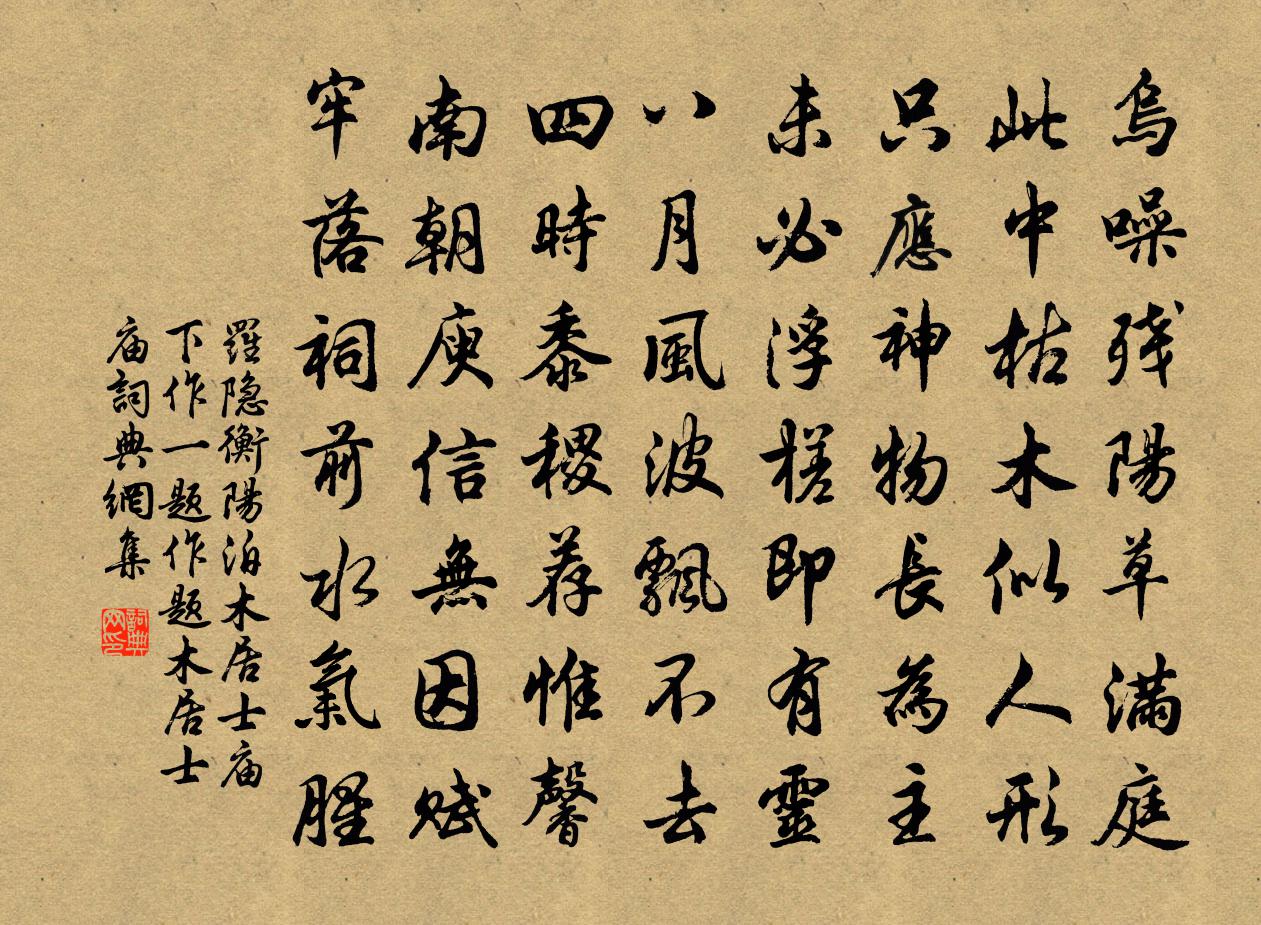 烏噪残陽草满庭
此中枯木似人形
只應神物長為主
未必浮槎即有靈
八月風波飄不去
四時黍稷荐惟馨
南朝庾信無因赋
牢落祠前水氣腥
羅隐衡陽泊木居士庙
下作一题作题木居士
庙詞典網集
詞典
网印